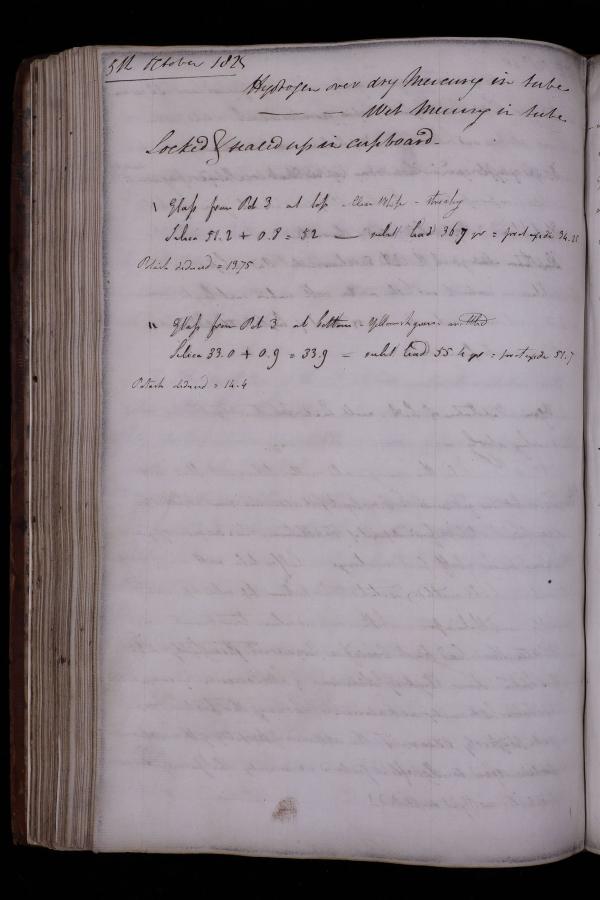 5th October 1825
Hydrogen over dry Mercury in tube
— — Wet Mercury in tube
Locked & sealed up in cupboard.
Glass from Pot 3 at top - Clear White - streaky
Silica 51.2 + 0.8 = 52 — sulph lead 36.7 gr = protoxide
Potash deduced = 13.75
" Glass from Pot 3 at bottom - Yellowish green
Silica 33.0 + 0.9 = 33.9 — sulph lead 55.4 gr = protoxide 51.7
Potash deduced = 14.4